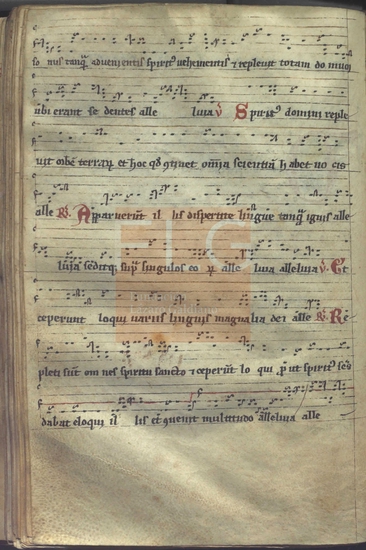 so nus tanq̃ aduenientis spirit⁹ uehementis ⁊ repleuit totam do mũ
ubi erant se dentes alle luia ỽ Spirit⁹ domini reple
uit orbẽ terrarũ et hoc qđ ↄtinet omnia scientiã habet uo cis
alle ℟ Apparuerũt il lis dispertite lingue tanq̃ ignis alle
luia seditq; sup̃ singulos eo ꝝ alle luia alleluia ỽ Et
ceperunt loqui uariis linguis magna lia dei alle ℟ Re
pleti sũt om nes spiritu sancto ⁊ ceperũt lo qui ꝓ ut spirit⁹ sc̃s
dabat eloqui il lis et ↄuenit multitudo alleluia alle
FLG